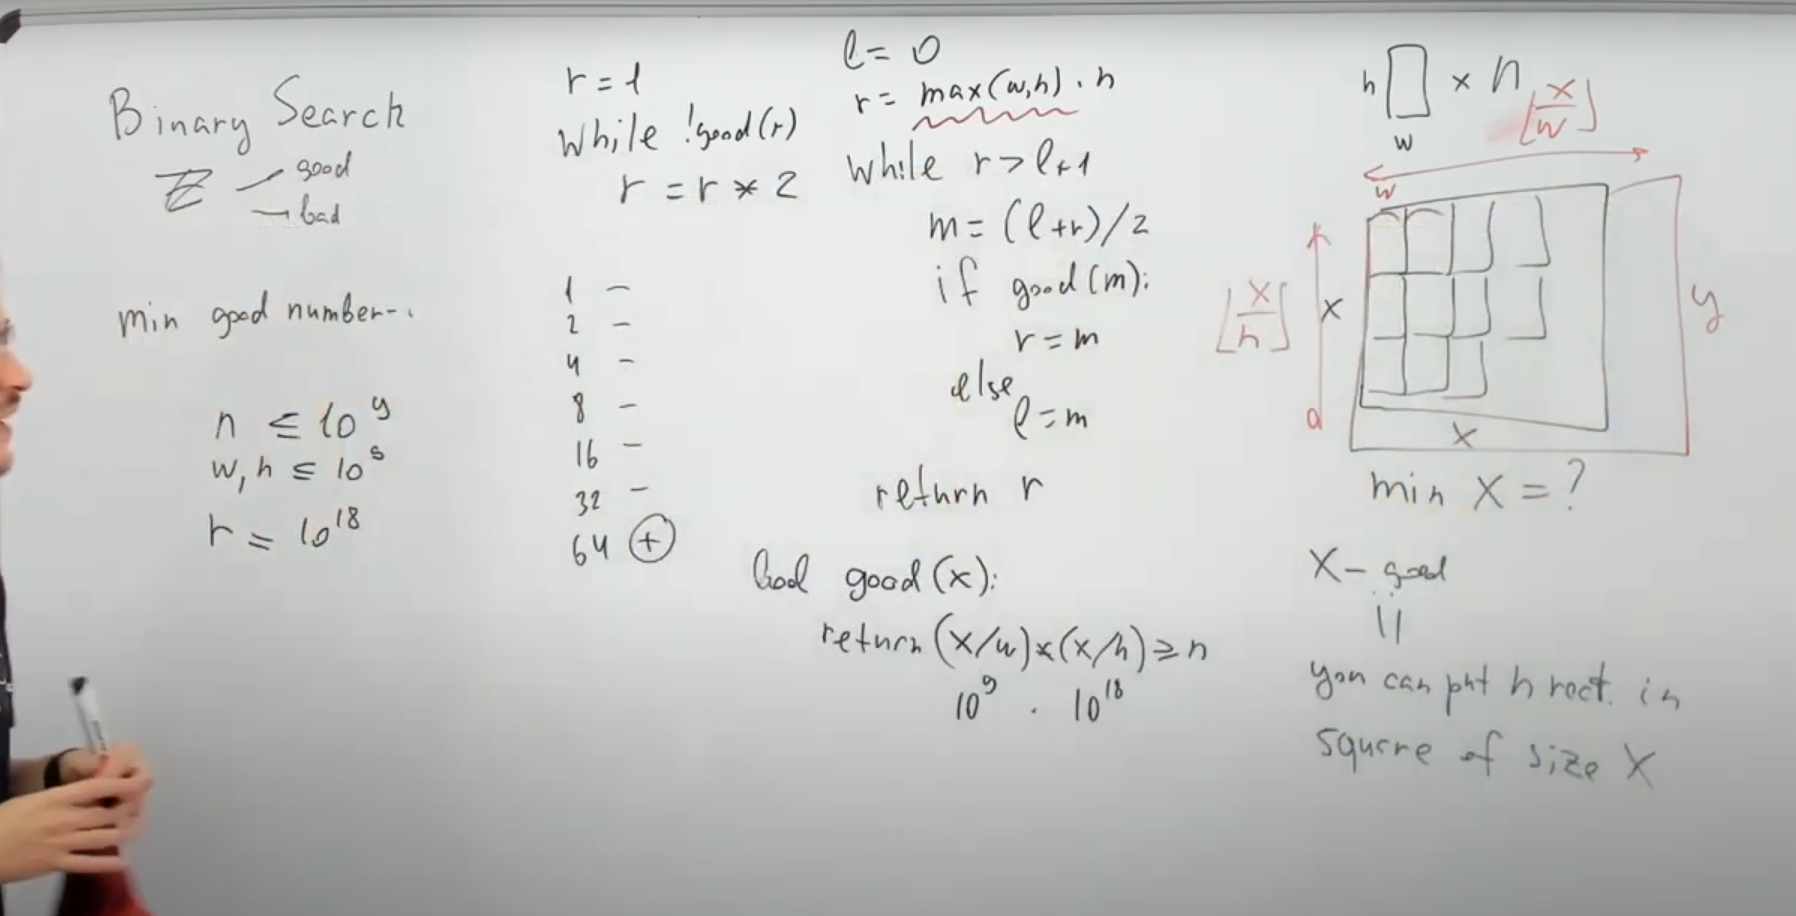 Binary Search
good
bad
min good number -.
n ≤ 10^9
w, h ≤ 10^9
r = 10^18
r = 1
while !good(r)
r = r * 2
1 –
2 –
4 –
8 –
16 –
32 –
64 +
l = 0
r = max(w,h) · n
while r > l+1
m = (l+r)/2
if good(m):
r = m
else
l = m
return r
bool good(x):
return (x/w)*(x/h) ≥ n
10^9 . 10^18
h × n
w
⌊x/w⌋
w
⌊x/h⌋
x
y
x
min X = ?
X – good
you can put n rect. in
square of size X